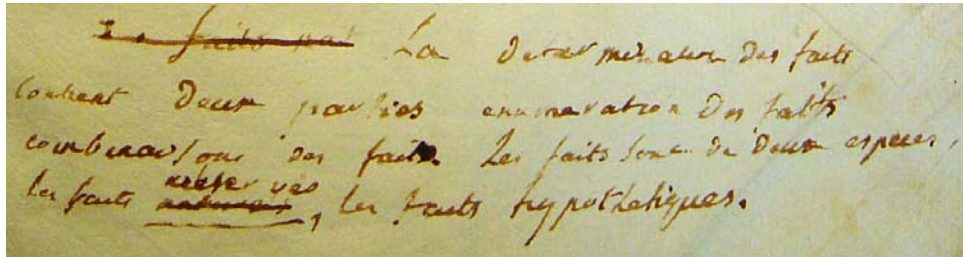 faits par La determination des faits
contient Deux parties enumeration Des faits
combinaisons des faits. Les faits sont de Deux especes,
les faits observés, les faits hypothetiques.